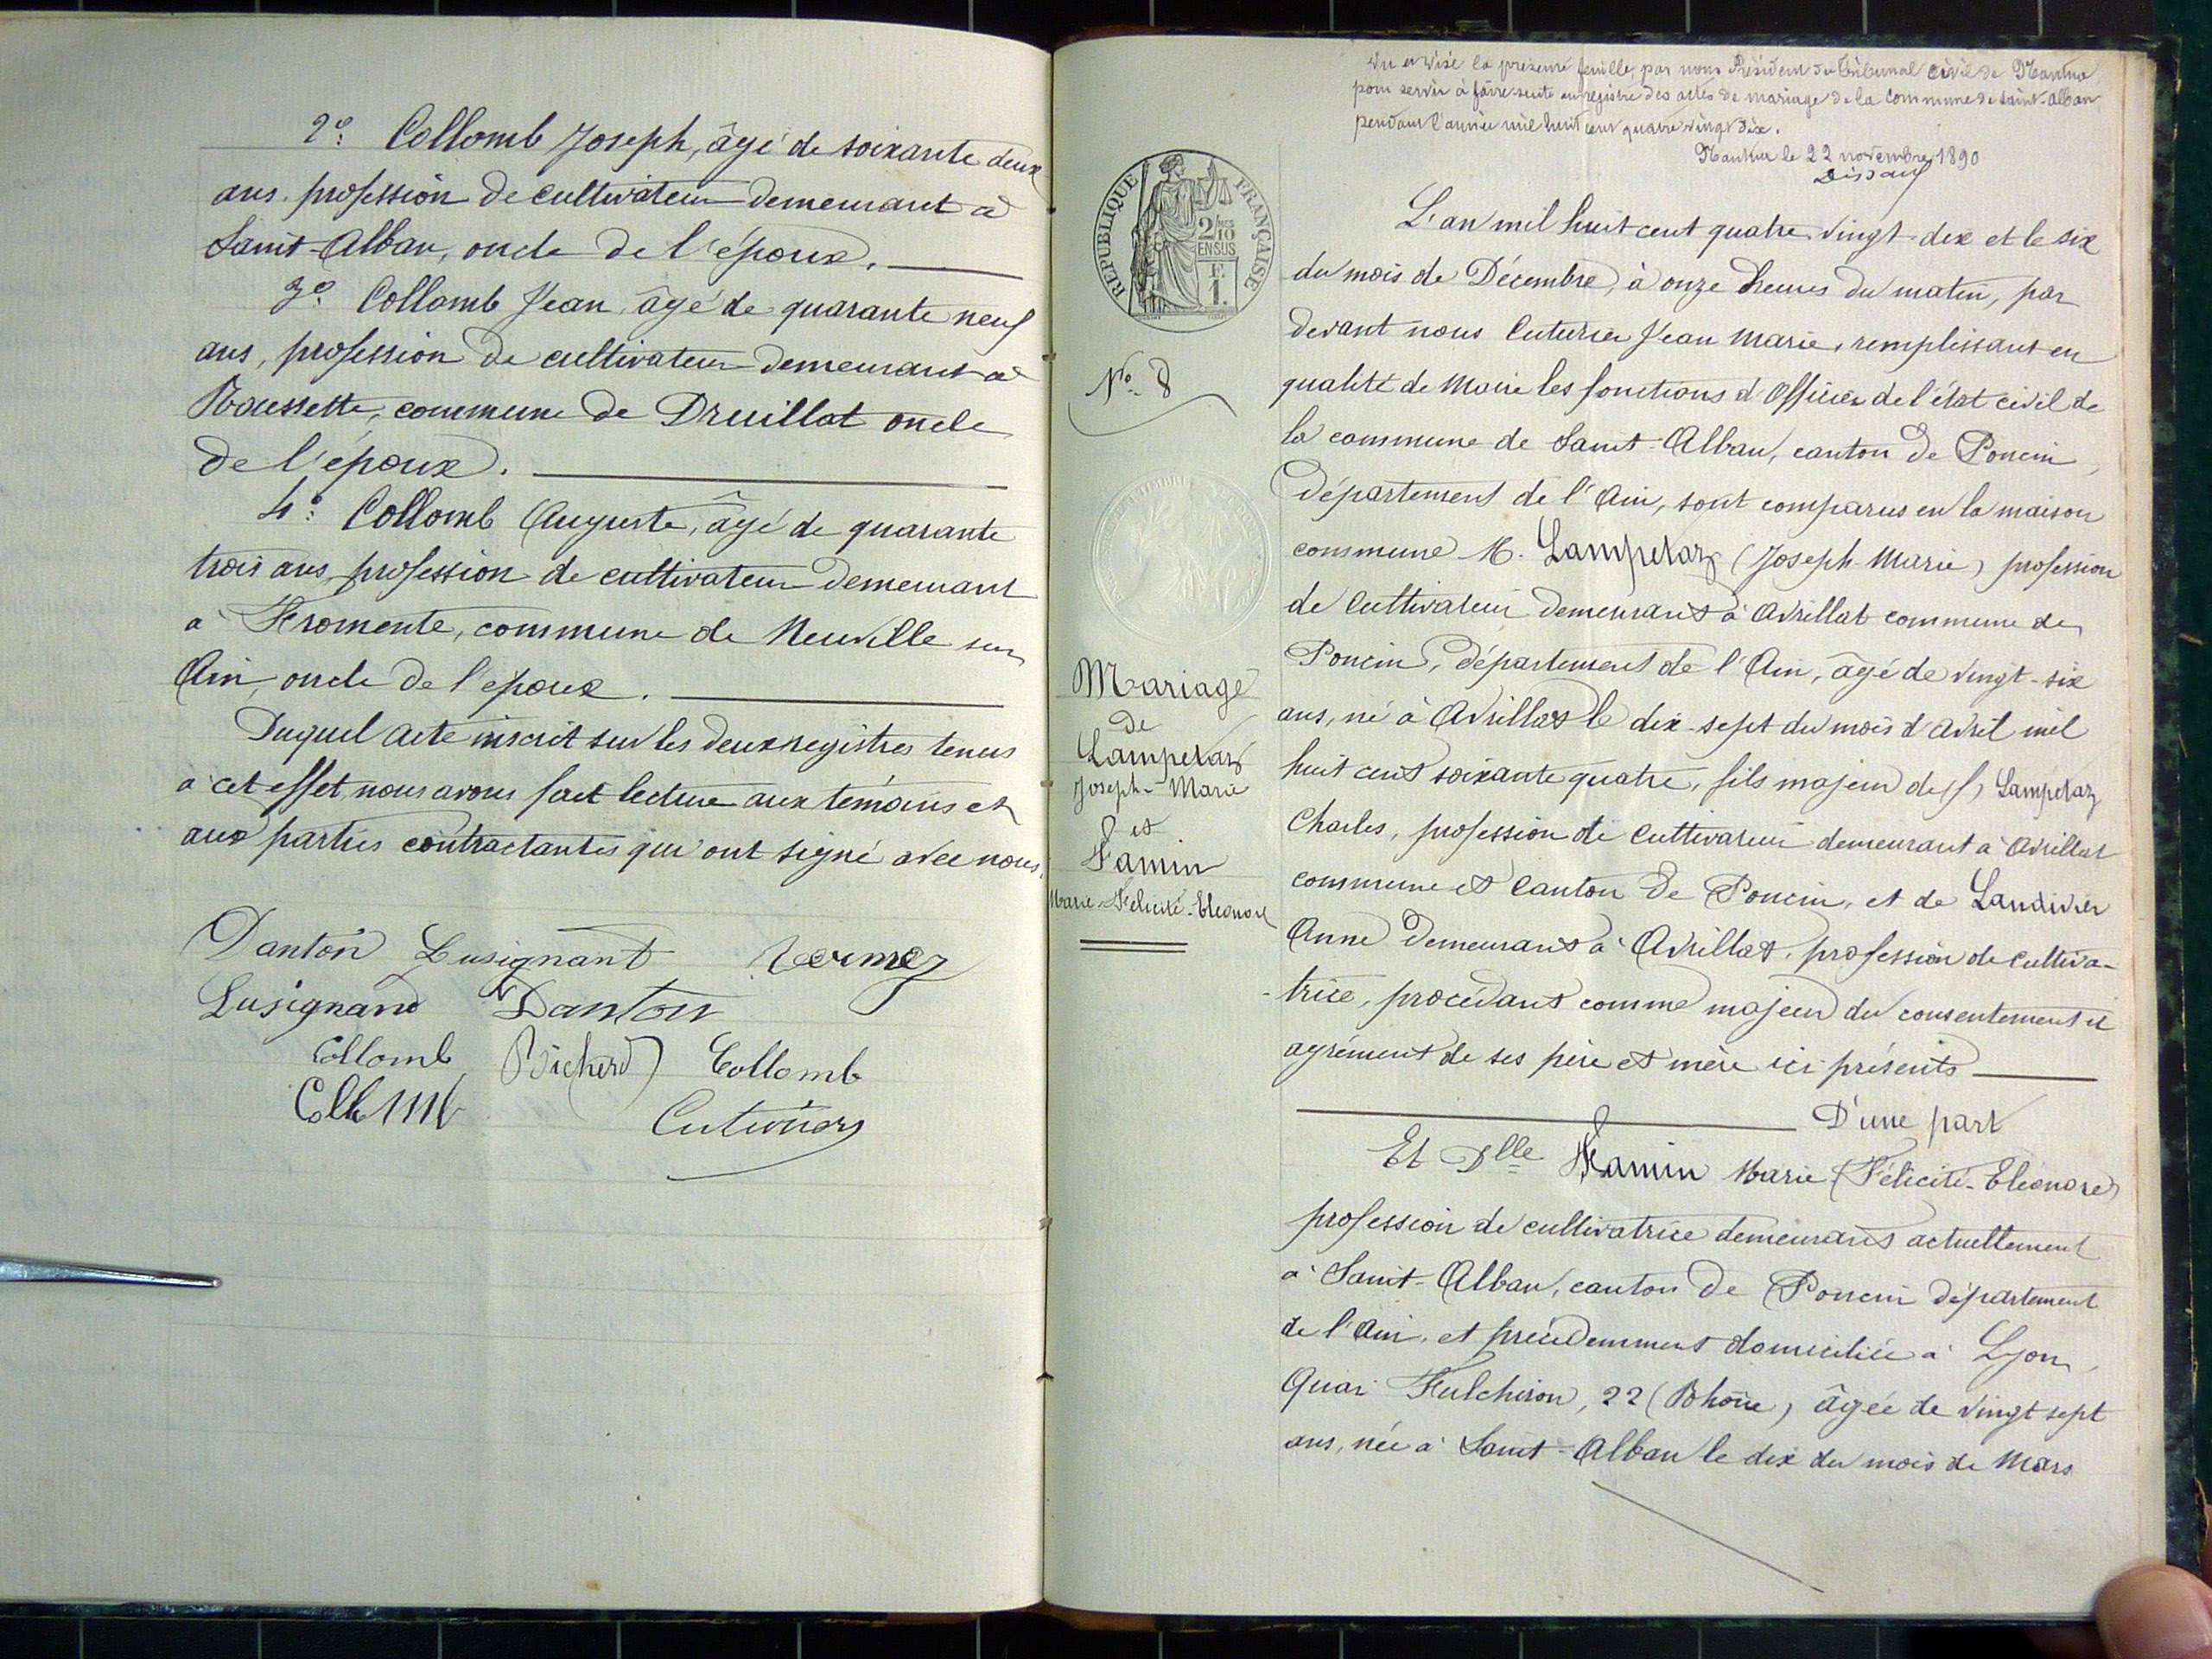 2° Collomb Joseph, âgé de soixante deux
ans. profession de cultivateur demeurant à
Saint-Alban, oncle de l'époux.
3° Collomb Jean, âgé de quarante neuf
ans, profession de cultivateur demeurant à
Roussette, commune de Druillat oncle
de l'époux.
4° Collomb Auguste, âgé de quarante
trois ans profession de cultivateur demeurant
à Fromente, commune de Neuville sur
Ain, oncle de l'époux.
Duquel acte inscrit sur les deux registres tenus
à cet effet nous avons fait lecture aux témoins et
aux parties contractantes qui ont signé avec nous.
Danton Lusignant
Lusignand Danton
Collomb Collomb
Cuturier
Vu et visé la présente feuille, par nous Président du Tribunal civil de Nantua
pour servir à faire suite au registre des actes de mariage de la commune de Saint-Alban
pendant l'année mil huit cent quatre vingt dix.
Nantua le 22 novembre 1890
REPUBLIQUE FRANÇAISE
2/10 EN SUS
F. 1.
N° 8
Mariage
de
Lampelaz
Joseph-Marie
et
Famin
Marie-Félicité-Eléonore
L'an mil huit cent quatre vingt-dix et le six
du mois de Décembre, à onze heures du matin, par
devant nous Cuturier Jean Marie, remplissant en
qualité de Maire les fonctions d'Officier de l'état civil de
la commune de Saint-Alban, canton de Poncin,
département de l'Ain, sont comparus en la maison
commune M. Lampelaz (Joseph-Marie) profession
de cultivateur demeurant à Avrillat commune de
Poncin, département de l'Ain, âgé de vingt-six
ans, né à Avrillat le dix-sept du mois d'Avril mil
huit cent soixante quatre, fils majeur de (f) Lampelaz
Charles, profession de cultivateur demeurant à Avrillat
commune et canton de Poncin, et de Landivier
Anne demeurant à Avrillat, profession de cultiva-
-trice, procédant comme majeur du consentement et
agrément de ses père et mère ici présents
D'une part
Et Dlle Famin Marie (Félicité-Eléonore)
profession de cultivatrice demeurant actuellement
à Saint-Alban, canton de Poncin département
de l'Ain, et précédemment domiciliée à Lyon,
Quai Fulchiron, 22 (Rhône) âgée de vingt sept
ans, née à Saint-Alban le dix du mois de Mars